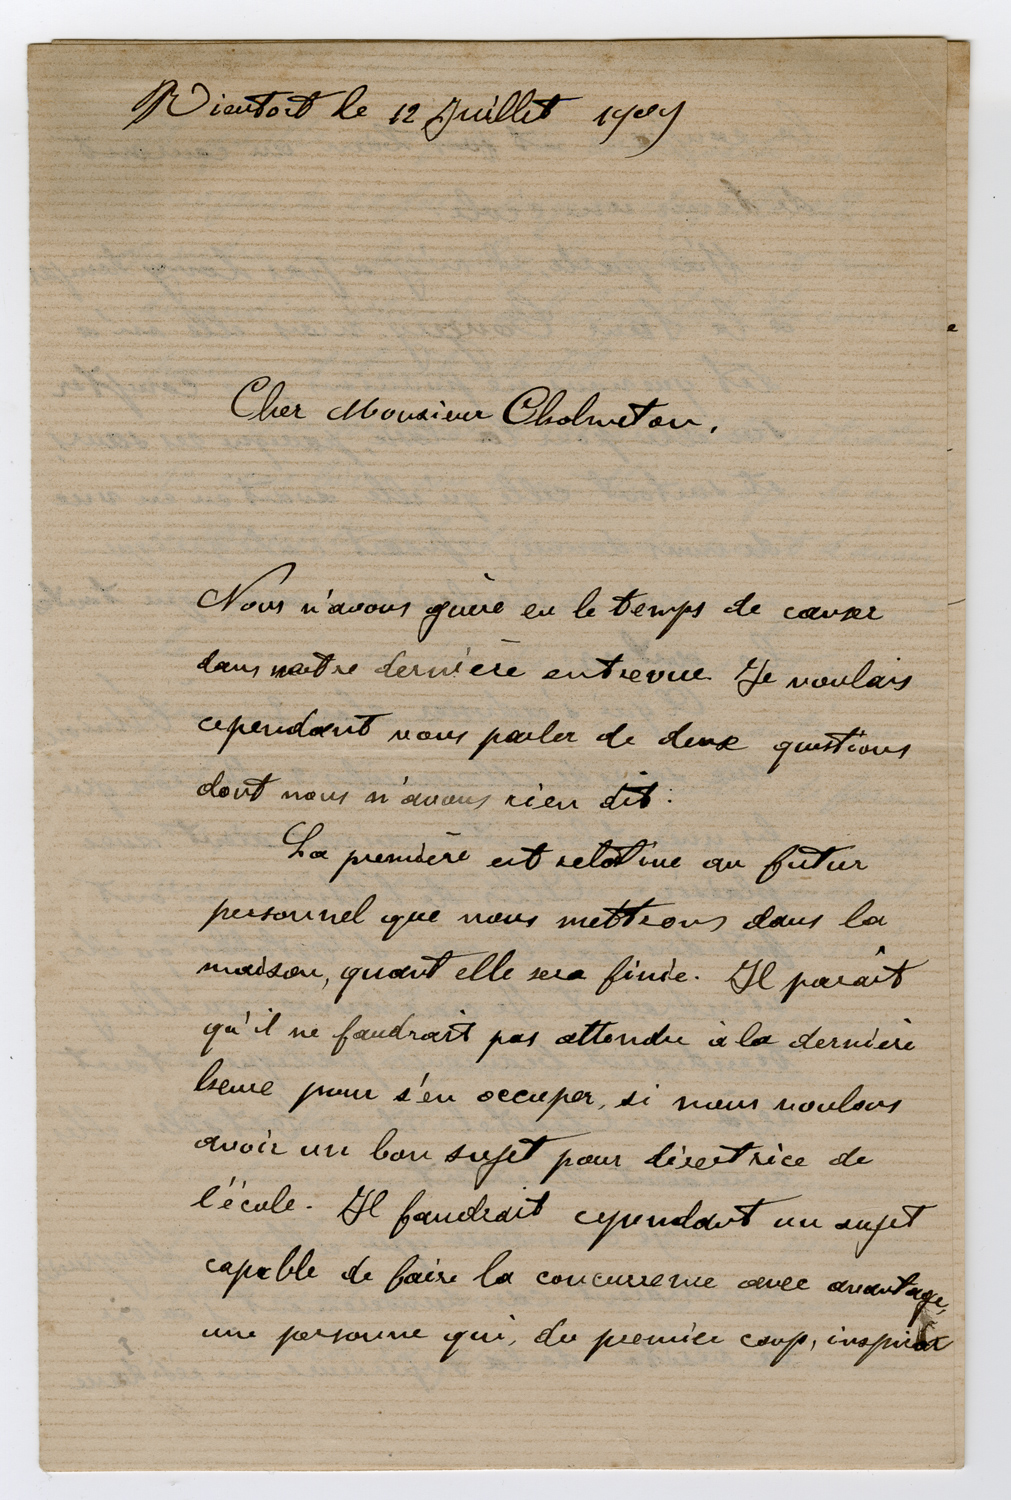 Rientort le 12 Juillet 1909
Cher Monsieur Cholmeton,
Nous n'avons guère eu le temps de causer
dans notre dernière entrevue. Je voulais
cependant vous parler de deux questions
dont nous n'avons rien dit :
La première est relative au futur
personnel que nous mettrons dans la
maison, quant elle sera finie. Il paraît
qu'il ne faudrait pas attendre à la dernière
heure pour s'en occuper, si nous voulons
avoir un bon sujet pour directrice de
l'école. Il faudrait cependant un sujet
capable de faire la concurrence avec avantage,
une personne qui, du premier coup, inspirat